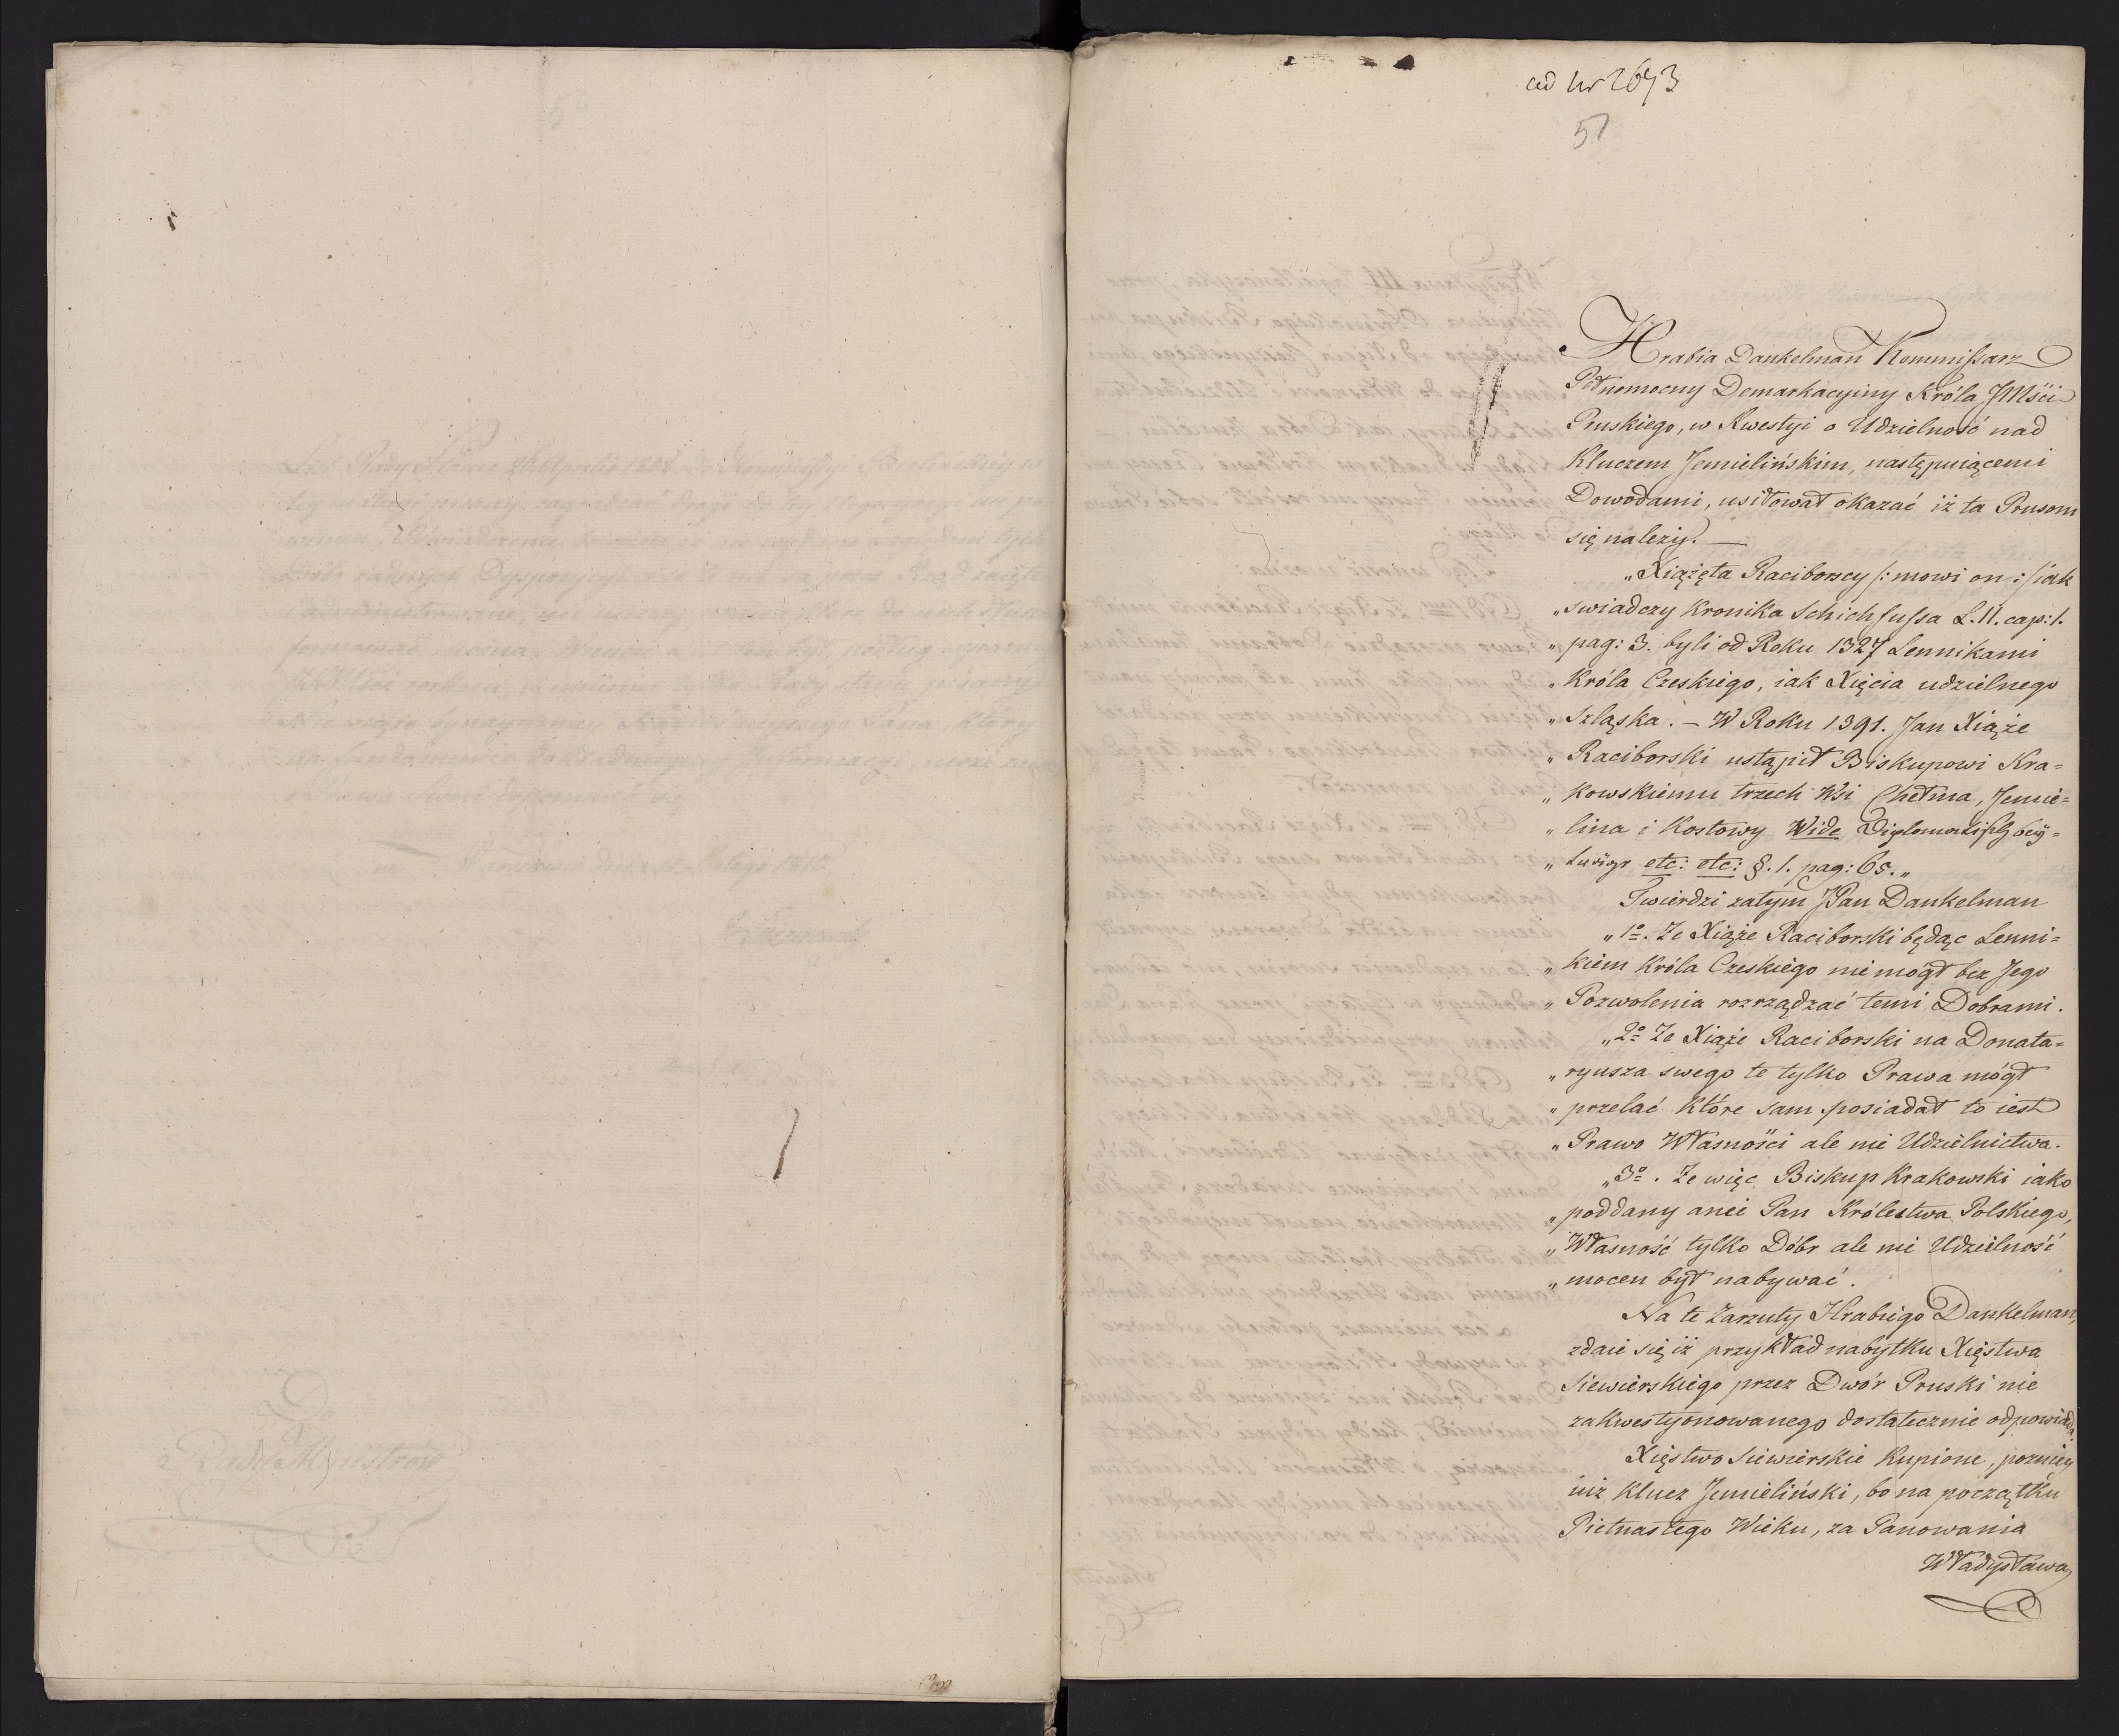 ad Nr 2693
51
Hrabia Dankelman Kommißarz
Pełnomocny Demarkacyiny Króla JMści
Pruskiego, w Kwestyi o Udzielność nad
Kluczem Jemielińskim, następuiącemi
Dowodami, usiłował okazać iż ta Prusom
się należy. —
„Xiążęta Raciborscy /: mowi on :/ iak
„swiadczy Kronika Schichfussa L. II. cap: 1.
„pag: 3. byli od Roku 1327 Lennikami
„Króla Czeskiego, iak Xięcia udzielnego
„Szląska. — W Roku 1391. Jan Xiąże
„Raciborski ustąpił Biskupowi Kra=
„kowskiemu trzech Wsi Chełma, Jemie=
„lina i Kostowy Wide
„ etc: etc: §. 1. pag: 65.„
Twierdzi zatym JPan Dankelman
„1o. Ze Xiąże Raciborski będąc Lenni=
„kiem Króla Czeskiego nie mógł bez Jego
„Pozwolenia rozrządzać temi Dobrami.
„2o Ze Xiąże Raciborski na Donata=
„ryusza swego te tylko Prawa mógł
„przelać które sam posiadał to iest
„Prawo Własności ale nie Udzielnictwa.
„3o. Ze więc Biskup Krakowski iako
„poddany a nie Pan Królestwa Polskiego,
„Własność tylko Dóbr ale nie Udzielność
„mocen był nabywać.
Na te Zarzuty Hrabiego Dankelman,
zdaie się iż przykład nabytku Xięstwa
Siewierskiego przez Dwór Pruski nie
zakwestyonowanego dostatecznie odpowiada.
Xięstwo Siewierskie Kupione, pozniey
niż Klucz Jemieliński, bo na początku
Pietnastego Wieku, za Panowania
Władysława